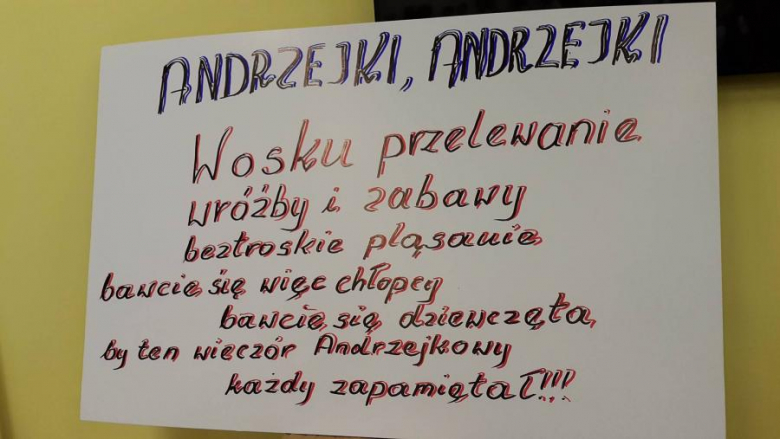 ANDRZEJKI, ANDRZEJKI
Wosku przelewanie
wróżby i zabawy
beztroskie pląsanie,
bawcie się więc chłopcy
bawcie się, dziewczęta,
by ten wieczór Andrzejkowy
każdy zapamiętał!!!!